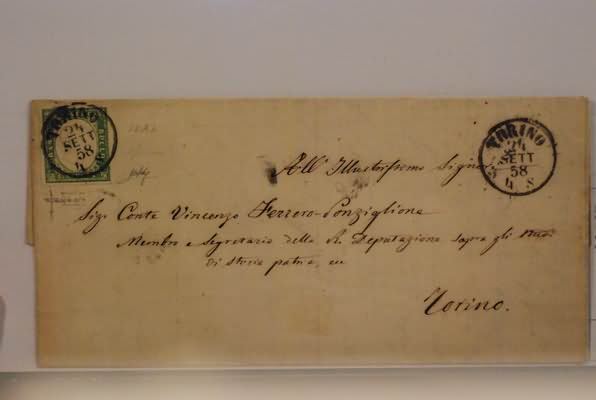 TORINO
24
SETT
58
4 S
TORINO
24
SETT
58
4 S
All' Illustrissimo Signor
Sig. Conte Vincenzo Ferrero-Ponziglione
Membro e Segretario della R. Deputazione sopra gli studi
di storia patria, ec
Torino.